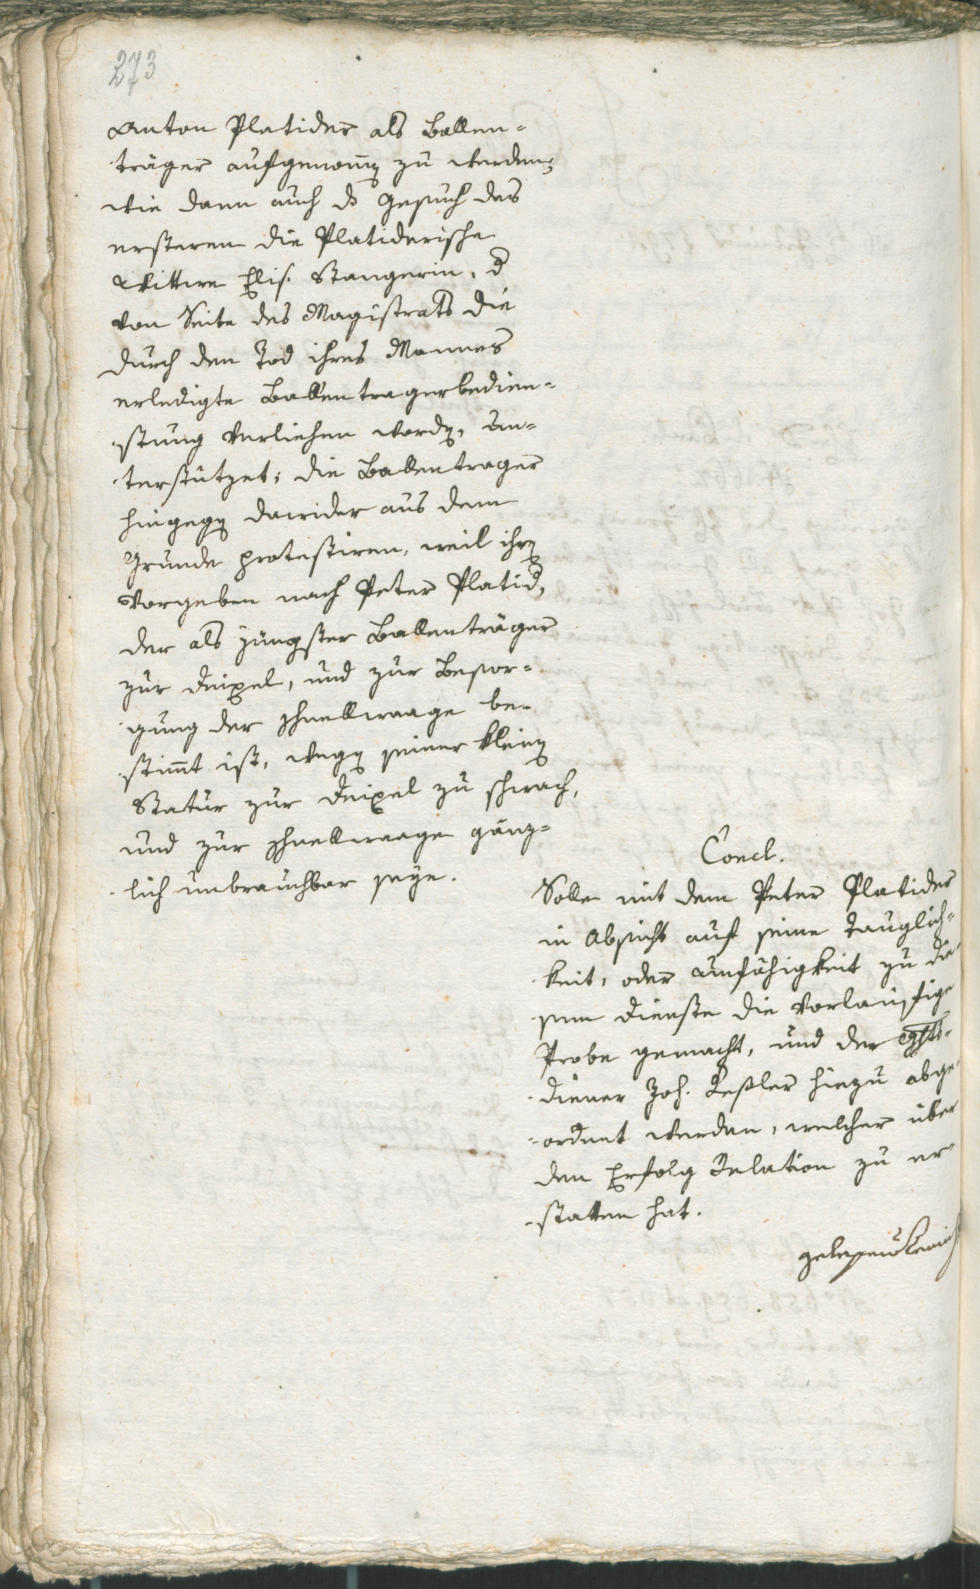 273
Anton Platider als Ballen-
träger aufgenom̅en zu werden;
wie dann auch ds Gesuch des
ersteren die Platiderische
Wittwe Elis. Stangerin, d
von Seite des Magistrats die
durch den Tod ihres Mannes
erledigte Ballentragerbedien-
stung verliehen worden, un-
terstützet; die Ballentrager
hingegen dawider aus dem
Grunde protestiren, weil ihrem
Vorgeben nach Peter Platid,
der als jüngster Ballenträger
zur Deixel, und zur Besor-
gung der Schnellwaage be-
stim̅t ist, wegen seiner kleinen
Statur zur Deixel zu schwach,
und zur Schnellwaage gänz-
lich unbrauchbar seye.
Concl.
Solle mit dem Peter Platider
in Absicht auf seine Tauglich-
keit, oder Unfähigkeit zu die-
sem Dienste die vorläufige
Probe gemacht, und der
diener Joh. Keßler hiezu abge-
ordnet werden, welcher über
den Erfolg Relation zu er-
statten hat.